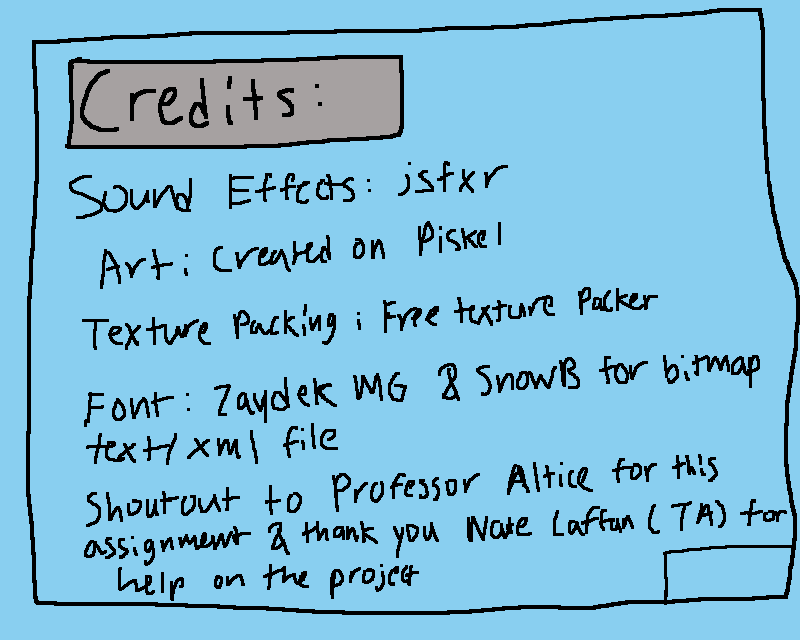 Credits:
Sound Effects: jsfxr
Art: Created on Piskel
Texture Packing: Free texture Packer
Font: Zaydek MG & SnowB for bitmap
text/xml file
Shoutout to Professor Altice for this
assignment & thank you Nate Laffan (TA) for
help on the project